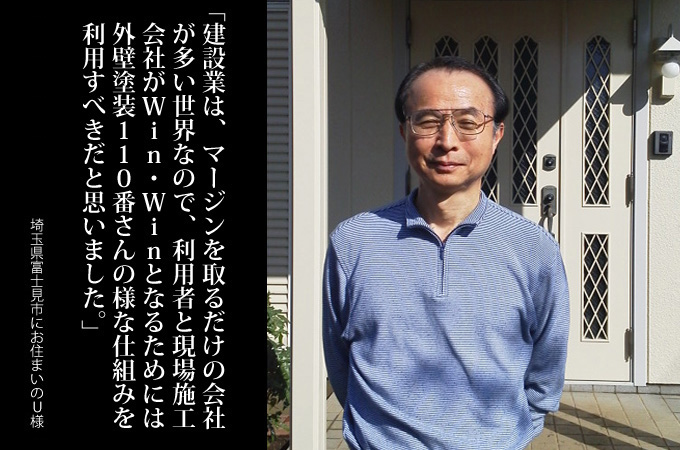 「建設業は、マージンを取るだけの会社
が多い世界なので、利用者と現場施工
会社がWin・Winとなるためには
外壁塗装110番さんの様な仕組みを
利用すべきだと思いました。」
埼玉県富士見市にお住まいのU様